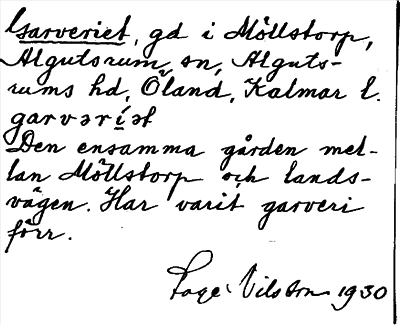 Garveriet, gd i Möllstorp,
Algutsrum sn, Alguts-
rums hd, Öland, Kalmar l.
garvəríət
Den ensamma gården mel-
lan Möllstorp och lands-
vägen. Har varit garveri
förr.
Tage Nilsson 1930